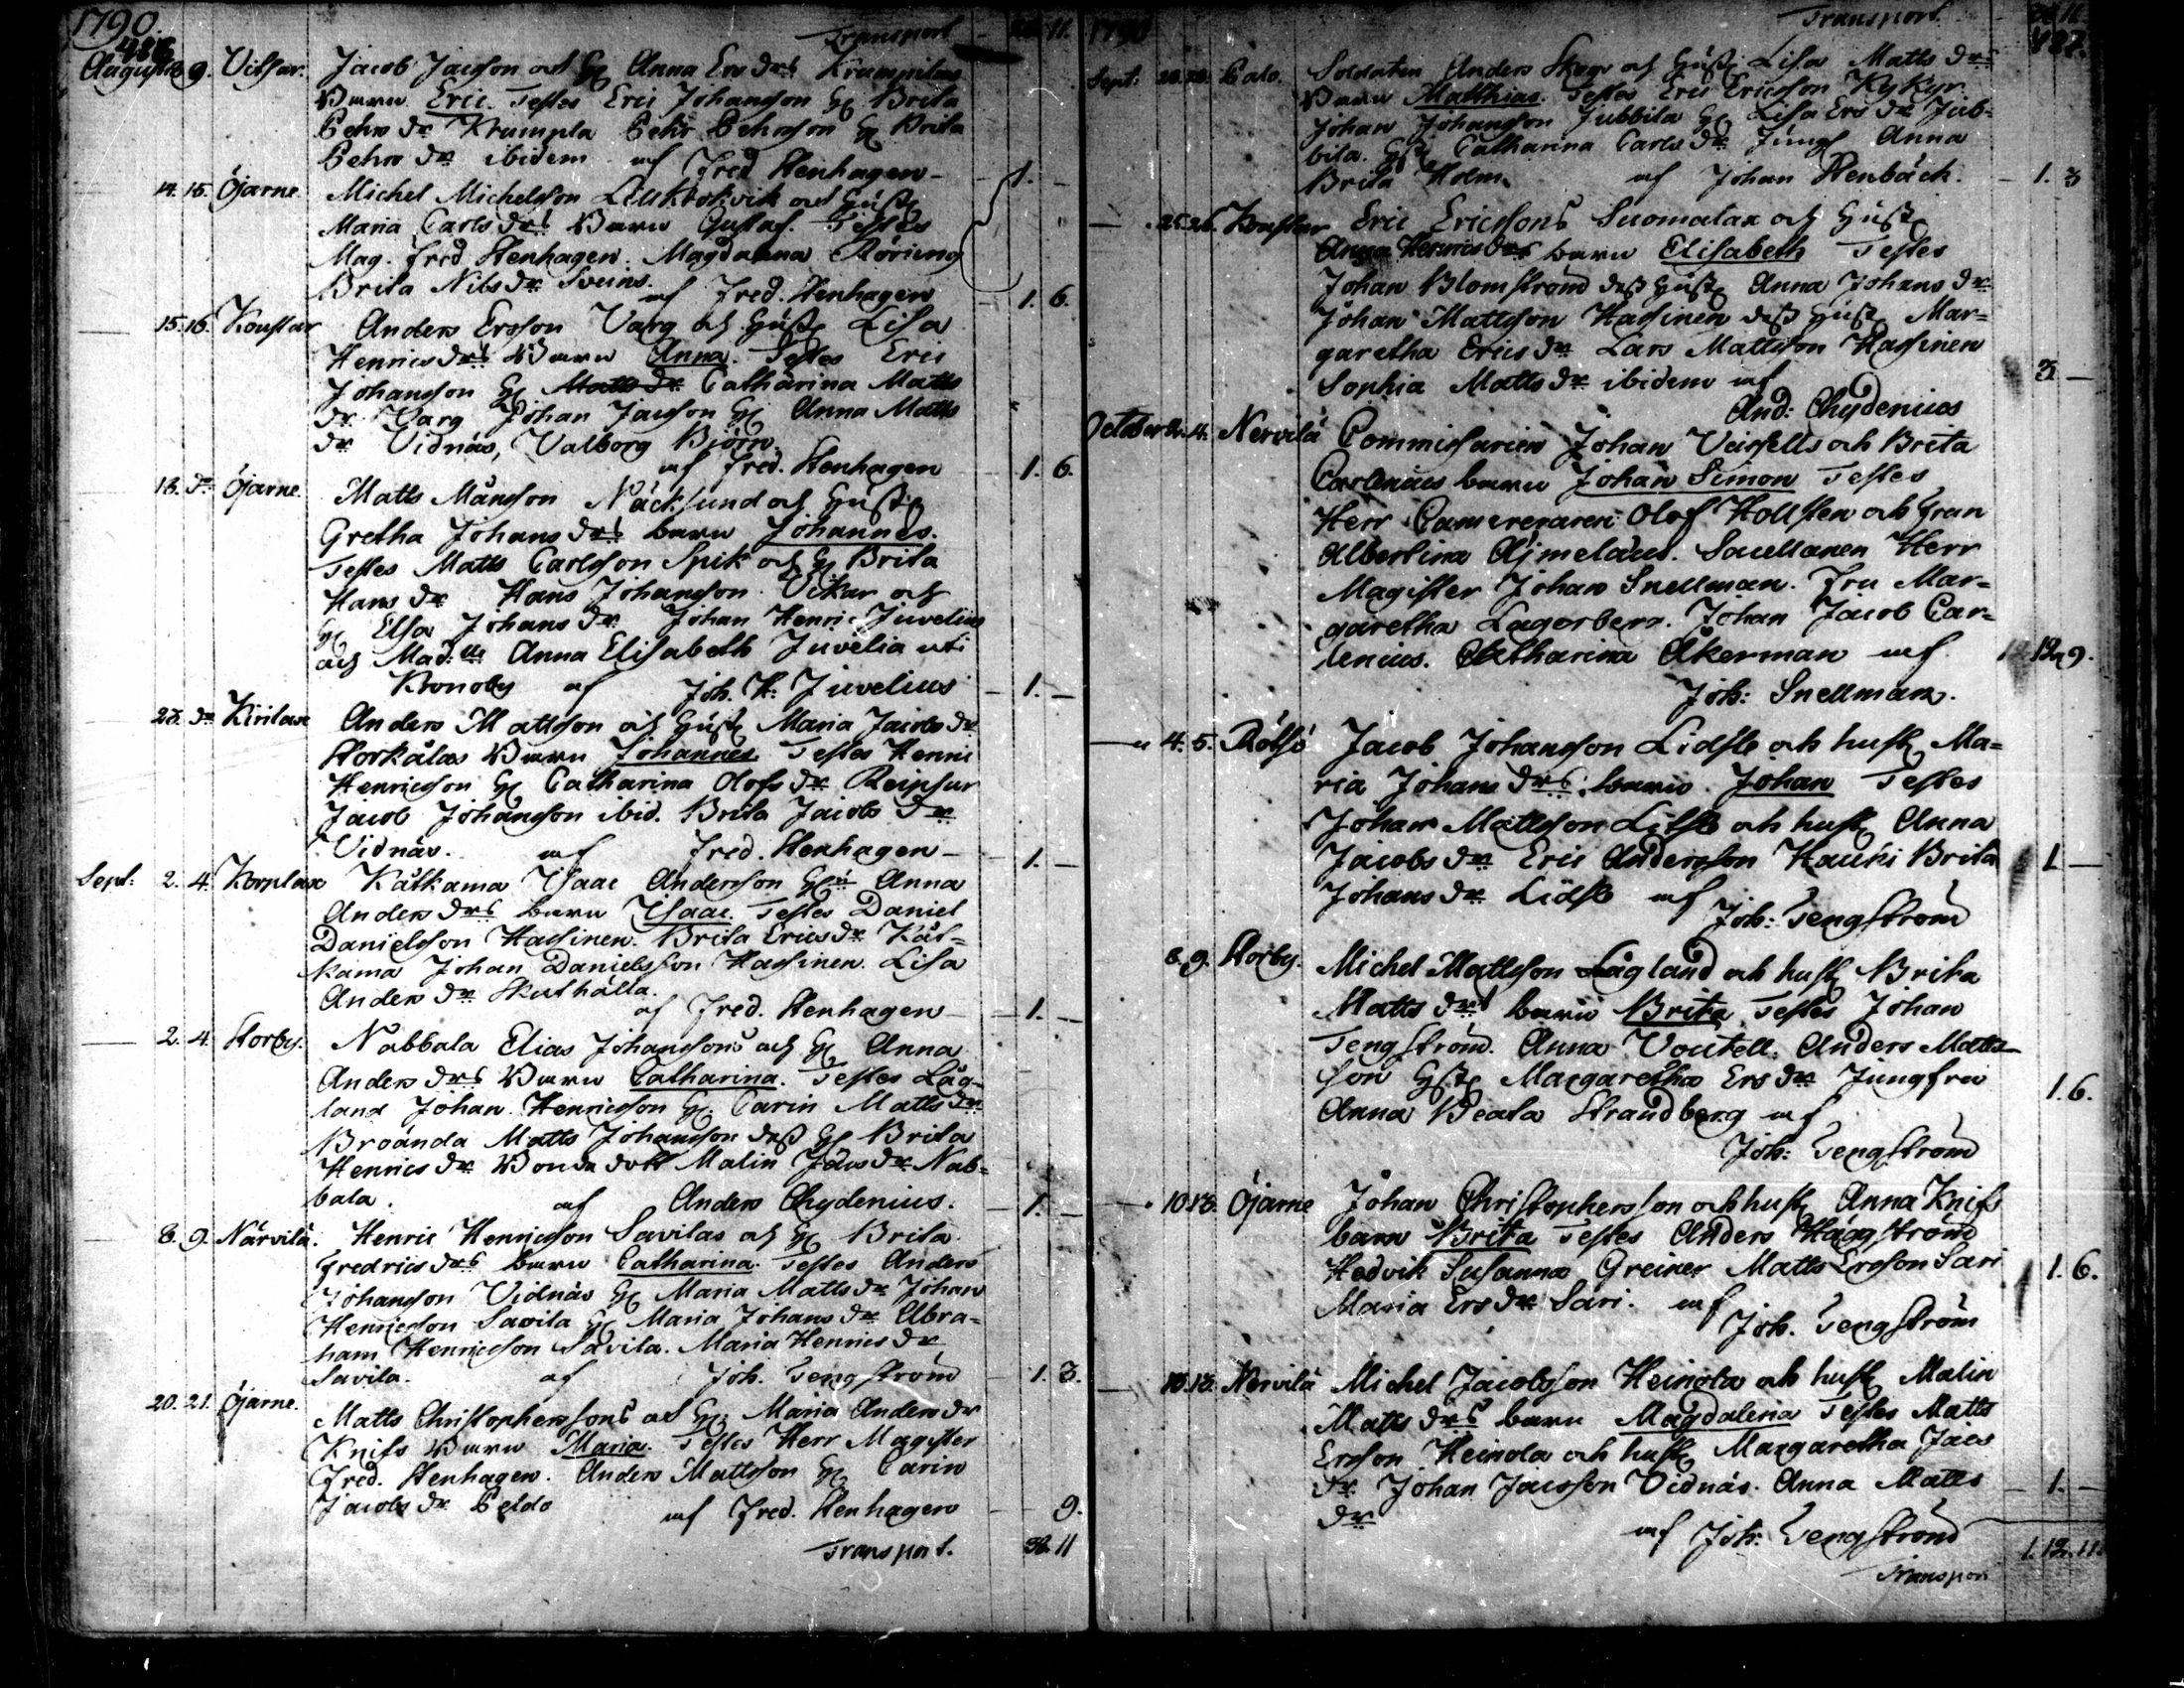 1790.
486
Transport
Augusti 9. Vitsar. Jacob Jacsson och H. Anna Ers drs Krumpilas
Barn Eric. Testes Eric Johansson H. Brita
Pehrs dr Krumpla Pehr Pehrsson H. Brita
Pehrs dr ibidem af Fred Stenhagen 1. _
14. 15. Öjarne. Michel Michelsson Lillkråkvik och Hust.
Maria Carls drs Barn Gustaf. Testes
Mag. Fred Stenhagen. Magdalena Röring
Brita Nils dr Sveins.
af Fred. Stenhagen 1. 6.
15. 16. Konstar Anders Ersson Varg och Hust. Lisa
Henrics drs Barn Anna. Testes Eric
Johansson H. Catharina Matts
dr Varg Johan Jacsson H. Anna Matts
dr Vidnäs, Valborg Björn.
af Fred. Stenhagen 1. 6.
18. dr Öjarne. Matts Månsson Näcksund och Hust.
Gretha Johans drs barn Johannes.
Testes Matts Carlsson Spik och H. Brita
Hans dr Hans Johansson Vikar och
H. Elsa Johans dr Johan Henric Juvelius
och Mad:lle Anna Elisabeth Juvelia uti
Kronoby af Joh. H. Juvelius 1. _
23. dr Kirilax Anders Mattsson och Hust. Maria Jacobs dr
Storkålas Barn Johannes. Testes Henric
Henricsson H. Catharina Olofs dr Reipsar
Jacob Johansson ibid. Brita Jacobs dr
Vidnäs. af Fred. Stenhagen 1. _
Sept: 2. 4. Korplax Kåtkama Isaac Andersson H. Anna
Anders drs barn Isaac. Testes Daniel
Danielsson Hassinen. Brita Erics dr Kåt-
kama Johan Danielsson Hassinen. Lisa
Anders dr Skuthälla.
af Fred. Stenhagen 1. _
2. 4. Storby. Nabbala Elias Johanssons och H. Anna
Anders drs Barn Catharina. Testes Låg-
land Johan Henricsson H. Carin Matts dr
Broända Matts Johansson dess H. Brita
Henrics dr Bonde dott Malin Jacs dr Nab=
bala. af Anders Chydenius. 1. _
8. 9. Närvilä. Henric Henricsson Savilas och H. Brita
Fredrics drs barn Catharina. Testes Anders
Johansson Vidnäs H. Maria Matts dr Johan
Henricsson Savila H. Maria Johans dr Abra=
ham Henricsson Savila. Maria Henrics dr
Savila. af Joh. Tengström 1. 3.
20. 21. Öjarne. Matts Christopherssons och H. Maria Anders dr
Knifs Barn Maria. Testes Herr Magister
Fred. Stenhagen. Anders Mattsson H. Carin
Jacobs dr Peldo af Fred. Stenhagen 9.
Transport. 38. 11
1790
Transport. 38 11.
487.
Sept: 20. 20. Palo. Soldaten Anders Skogs och Hust. Lisa Matts drs
Barn Matthias. Testes Eric Ericsson Kykyr.
Johan Johansson Jubbila H. Lisa Ers dr Jub-
bila. Catharina Carls dr Jungf Anna
Brita Holm. af Johan Stenbäck. 1. 3
25. 26. Konstar Eric Ericssons Suomalax och Hust.
Anna Henrics drs barn Elisabeth Testes
Johan Blomström dess Hust. Anna Johans dr
Johan Mattsson Hassinen dess Hust. Mar=
garetha Erics dr Lars Mattsson Hassinen
Sophia Matts dr ibidem af 3 _
And: Chydenius
October 4. Nervilä Commissarien Johan Vasells och Brita
Carlenius barn Johan Simon Testes
Herr Camereraren Olof Hollsten och Frun
Albertina Snellman Herr
Magister Johan Snellman. Fru Mar=
garetha Lagerberg. Johan Jacob Car-
lenius. Catharina Åkerman af 12. 9.
Joh: Snellman.
4. 5. Rölsö Jacob Johansson Lidsle och hust. Ma=
ria Johans drs barn Johan Testes
Johan Mattsson Litsle och hust. Anna
Jacobs dr Eric Andersson Hauki Brita 1 _
Johans dr Lidsle af
Joh: Tengström
8. 9. Storby. Michel Mattsson Lågland och hust. Brita
Matts drs barn Brita Testes Johan
Tengström. Anna Voutell. Anders Matts-
son Hust. Margaretha Ers dr Jungfru 1. 6.
Anna Beata Strandberg af
Joh: Tengström
10. 13. Öjarne Johan Christophersson och hust. Anna Knifs
barn Brita Testes Anders Häggström
Hedvik Susanna Greiner Matts Ersson Sari 1. 6.
Maria Ers dr Sari. af
Joh. Tengström
10. 13. Nervilä Michel Jacobsson Heinola och hust. Malin
Matts drs barn Magdalena Testes Matts
Ersson Heinola och hust. Margaretha Jacs
dr Johan Jacsson Vidnäs. Anna Matts 1. _
dr af Joh: Tengström
1. 12. 11.
Transpor